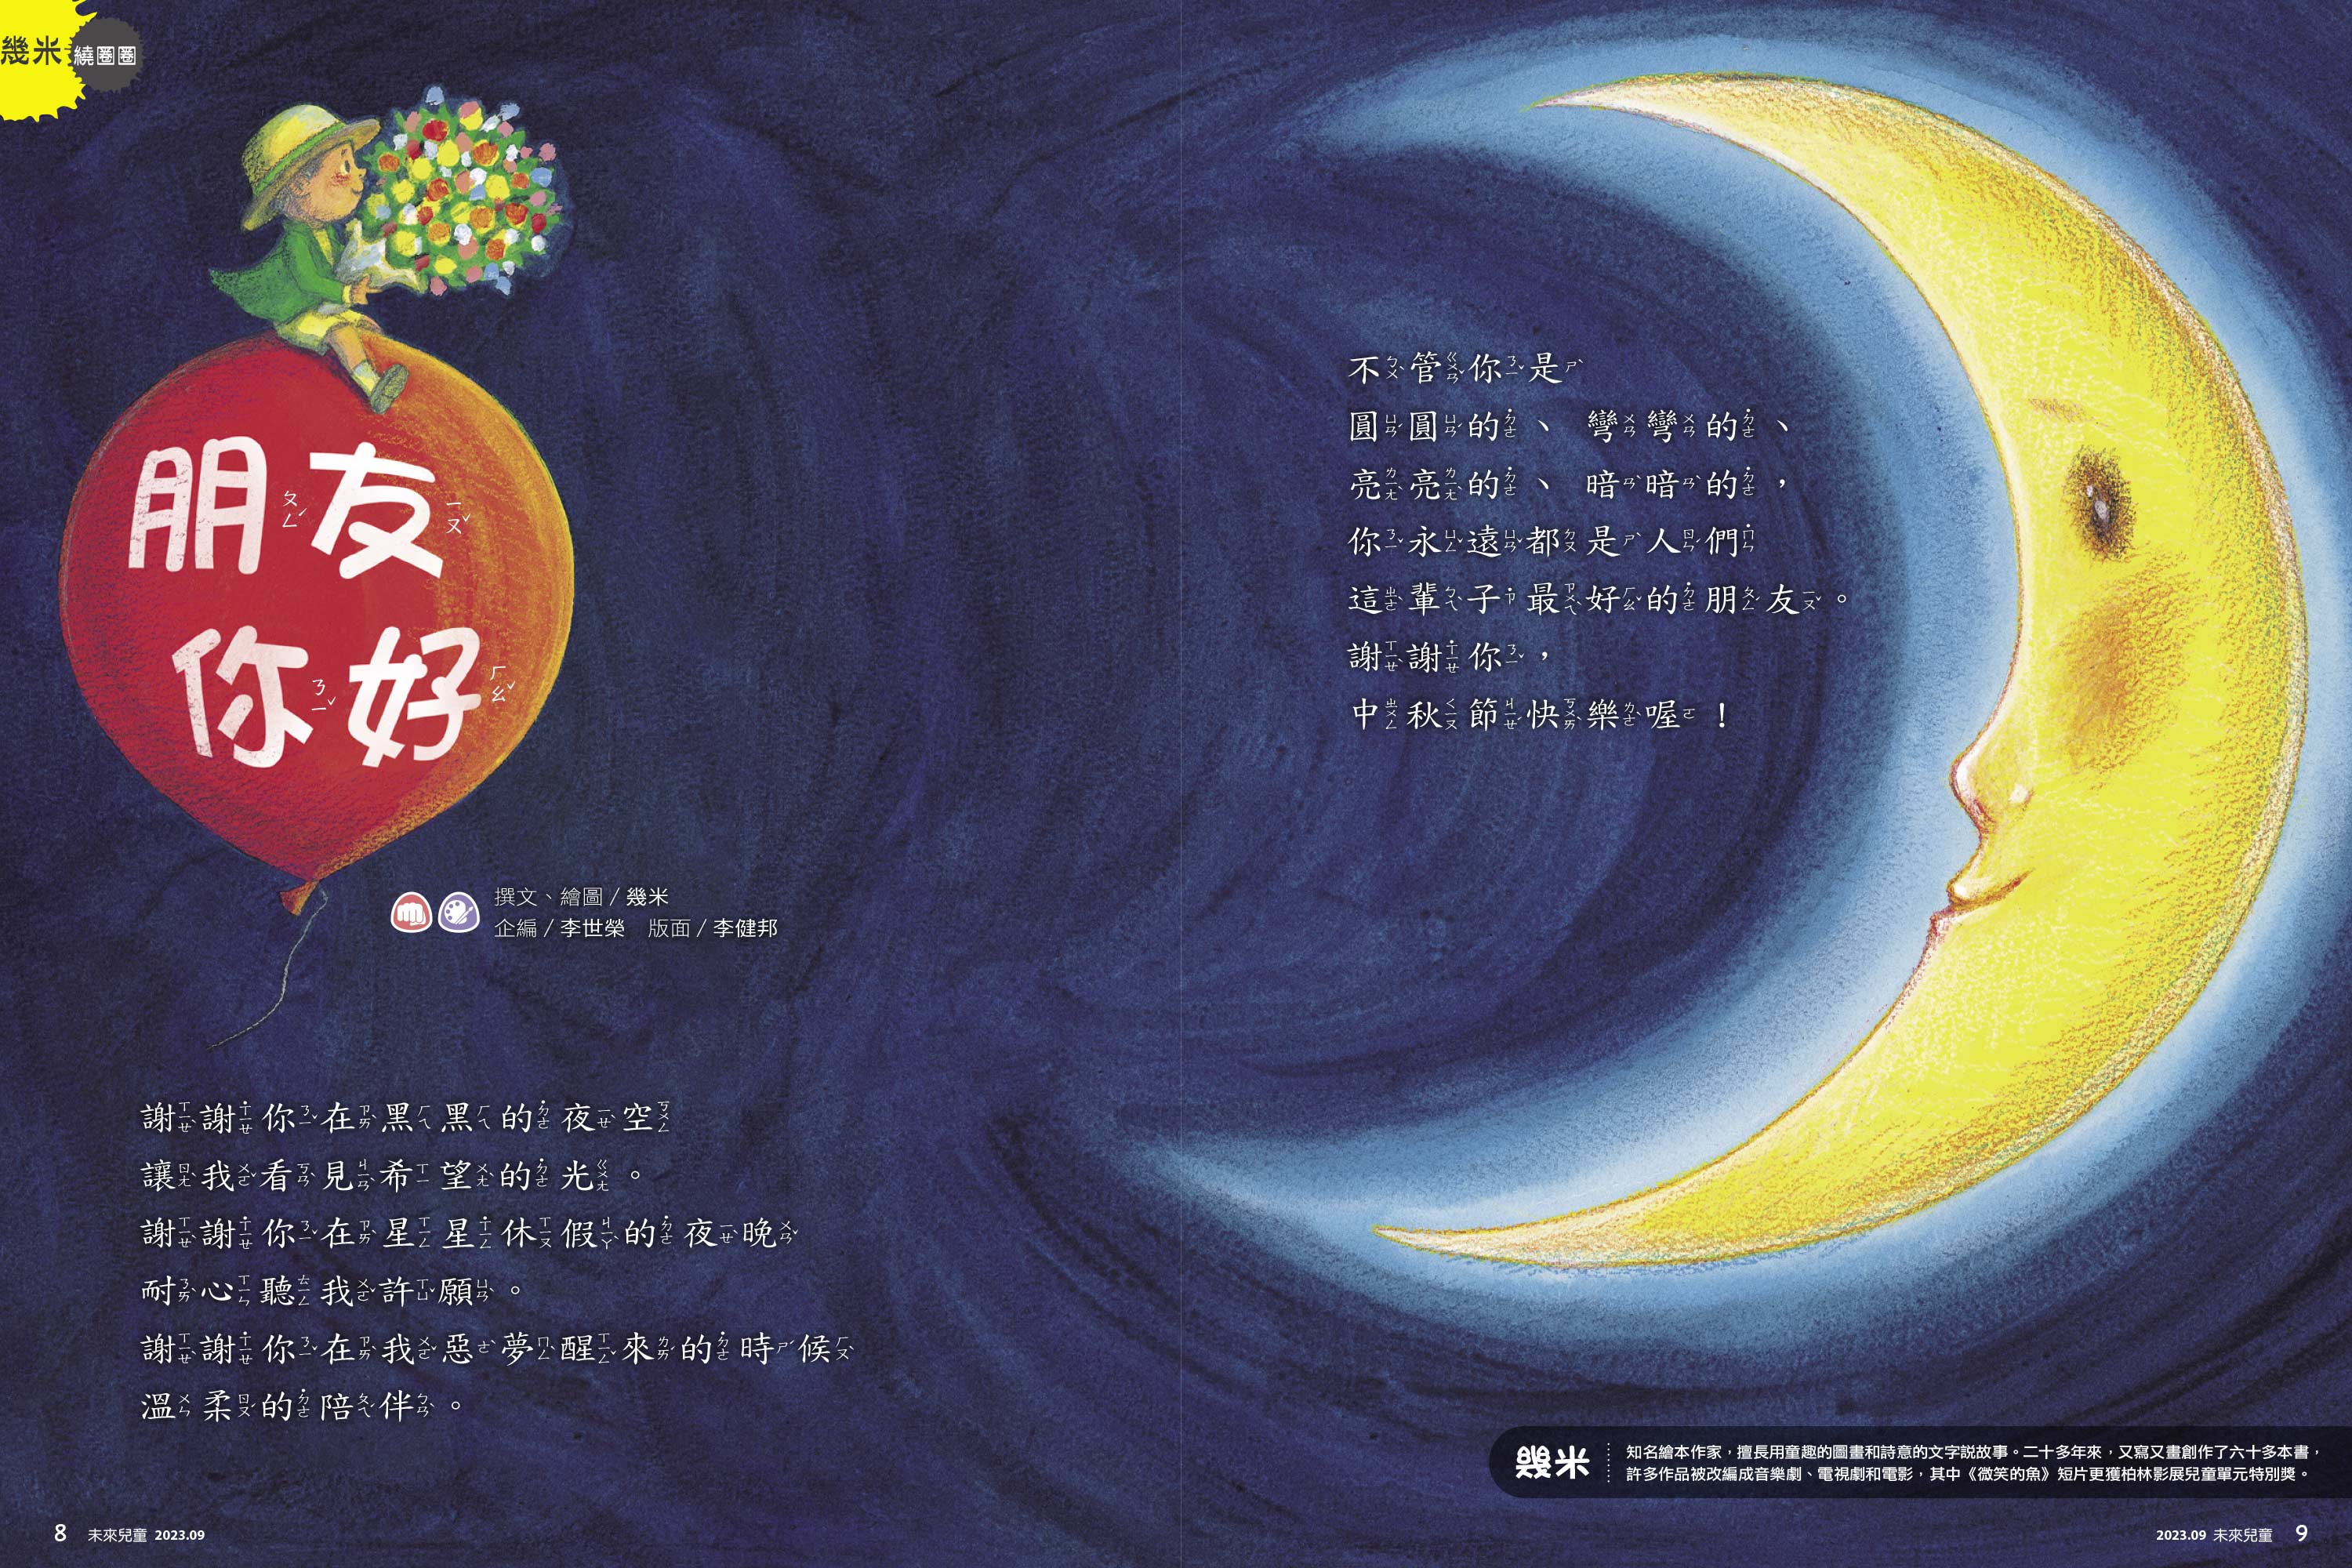 幾米 繞圈圈
朋友
你好
撰文、繪圖/幾米
企編/李世榮 版面/李健邦
謝謝你在黑黑的夜空
讓我看見希望的光。
謝謝你在星星休假的夜晚
耐心聽我許願。
謝謝你在我惡夢醒來的時候
溫柔的陪伴。
不管你是
圓圓的、彎彎的、
亮亮的、暗暗的，
你永遠都是人們
這輩子最好的朋友。
謝謝你，
中秋節快樂喔！
幾米
知名繪本作家，擅長用童趣的圖畫和詩意的文字說故事。二十多年來，又寫又畫創作了六十多本書，
許多作品被改編成音樂劇、電視劇和電影，其中《微笑的魚》短片更獲柏林影展兒童單元特別獎。
8 未來兒童 2023.09
2023.09 未來兒童 9